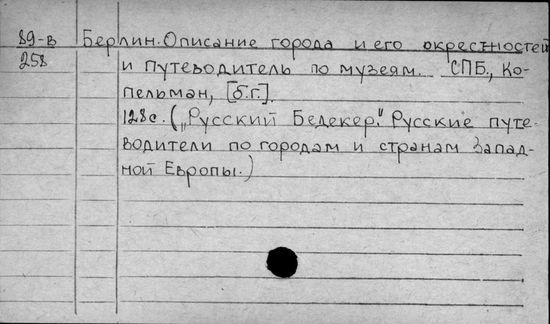 89-в Берлин. Описание города и его окрестностей
258 и путеводитель по музеям. СПБ., Ко-
пельман, [б.г.].
128с. („Русский Бедекер." Русские путе-
водители по городам и странам Запад-
ной Европы.)